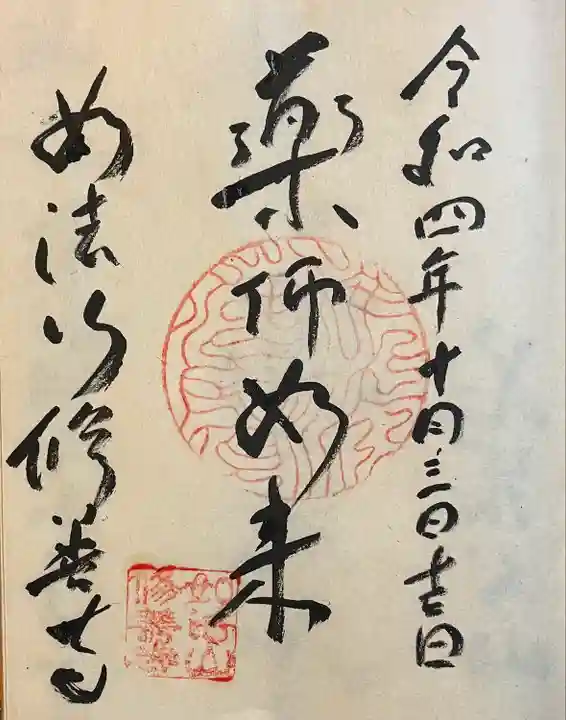 令和四年十月三日吉日
薬师如来
如法山修善寺
如法山
修善寺